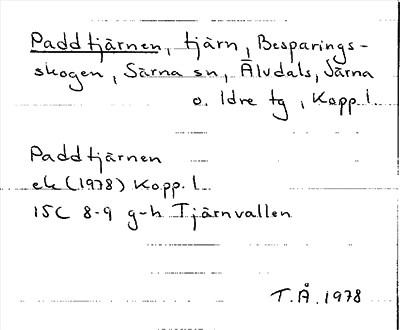 Paddtjärnen, tjärn, Besparings-
skogen, Särna sn, Älvdals, Särna
o. Idre tg, Kopp.l.
Paddtjärnen
ek (1978) Kopp.l.
15C 8-9 g-h Tjärnvallen
T.Å. 1978